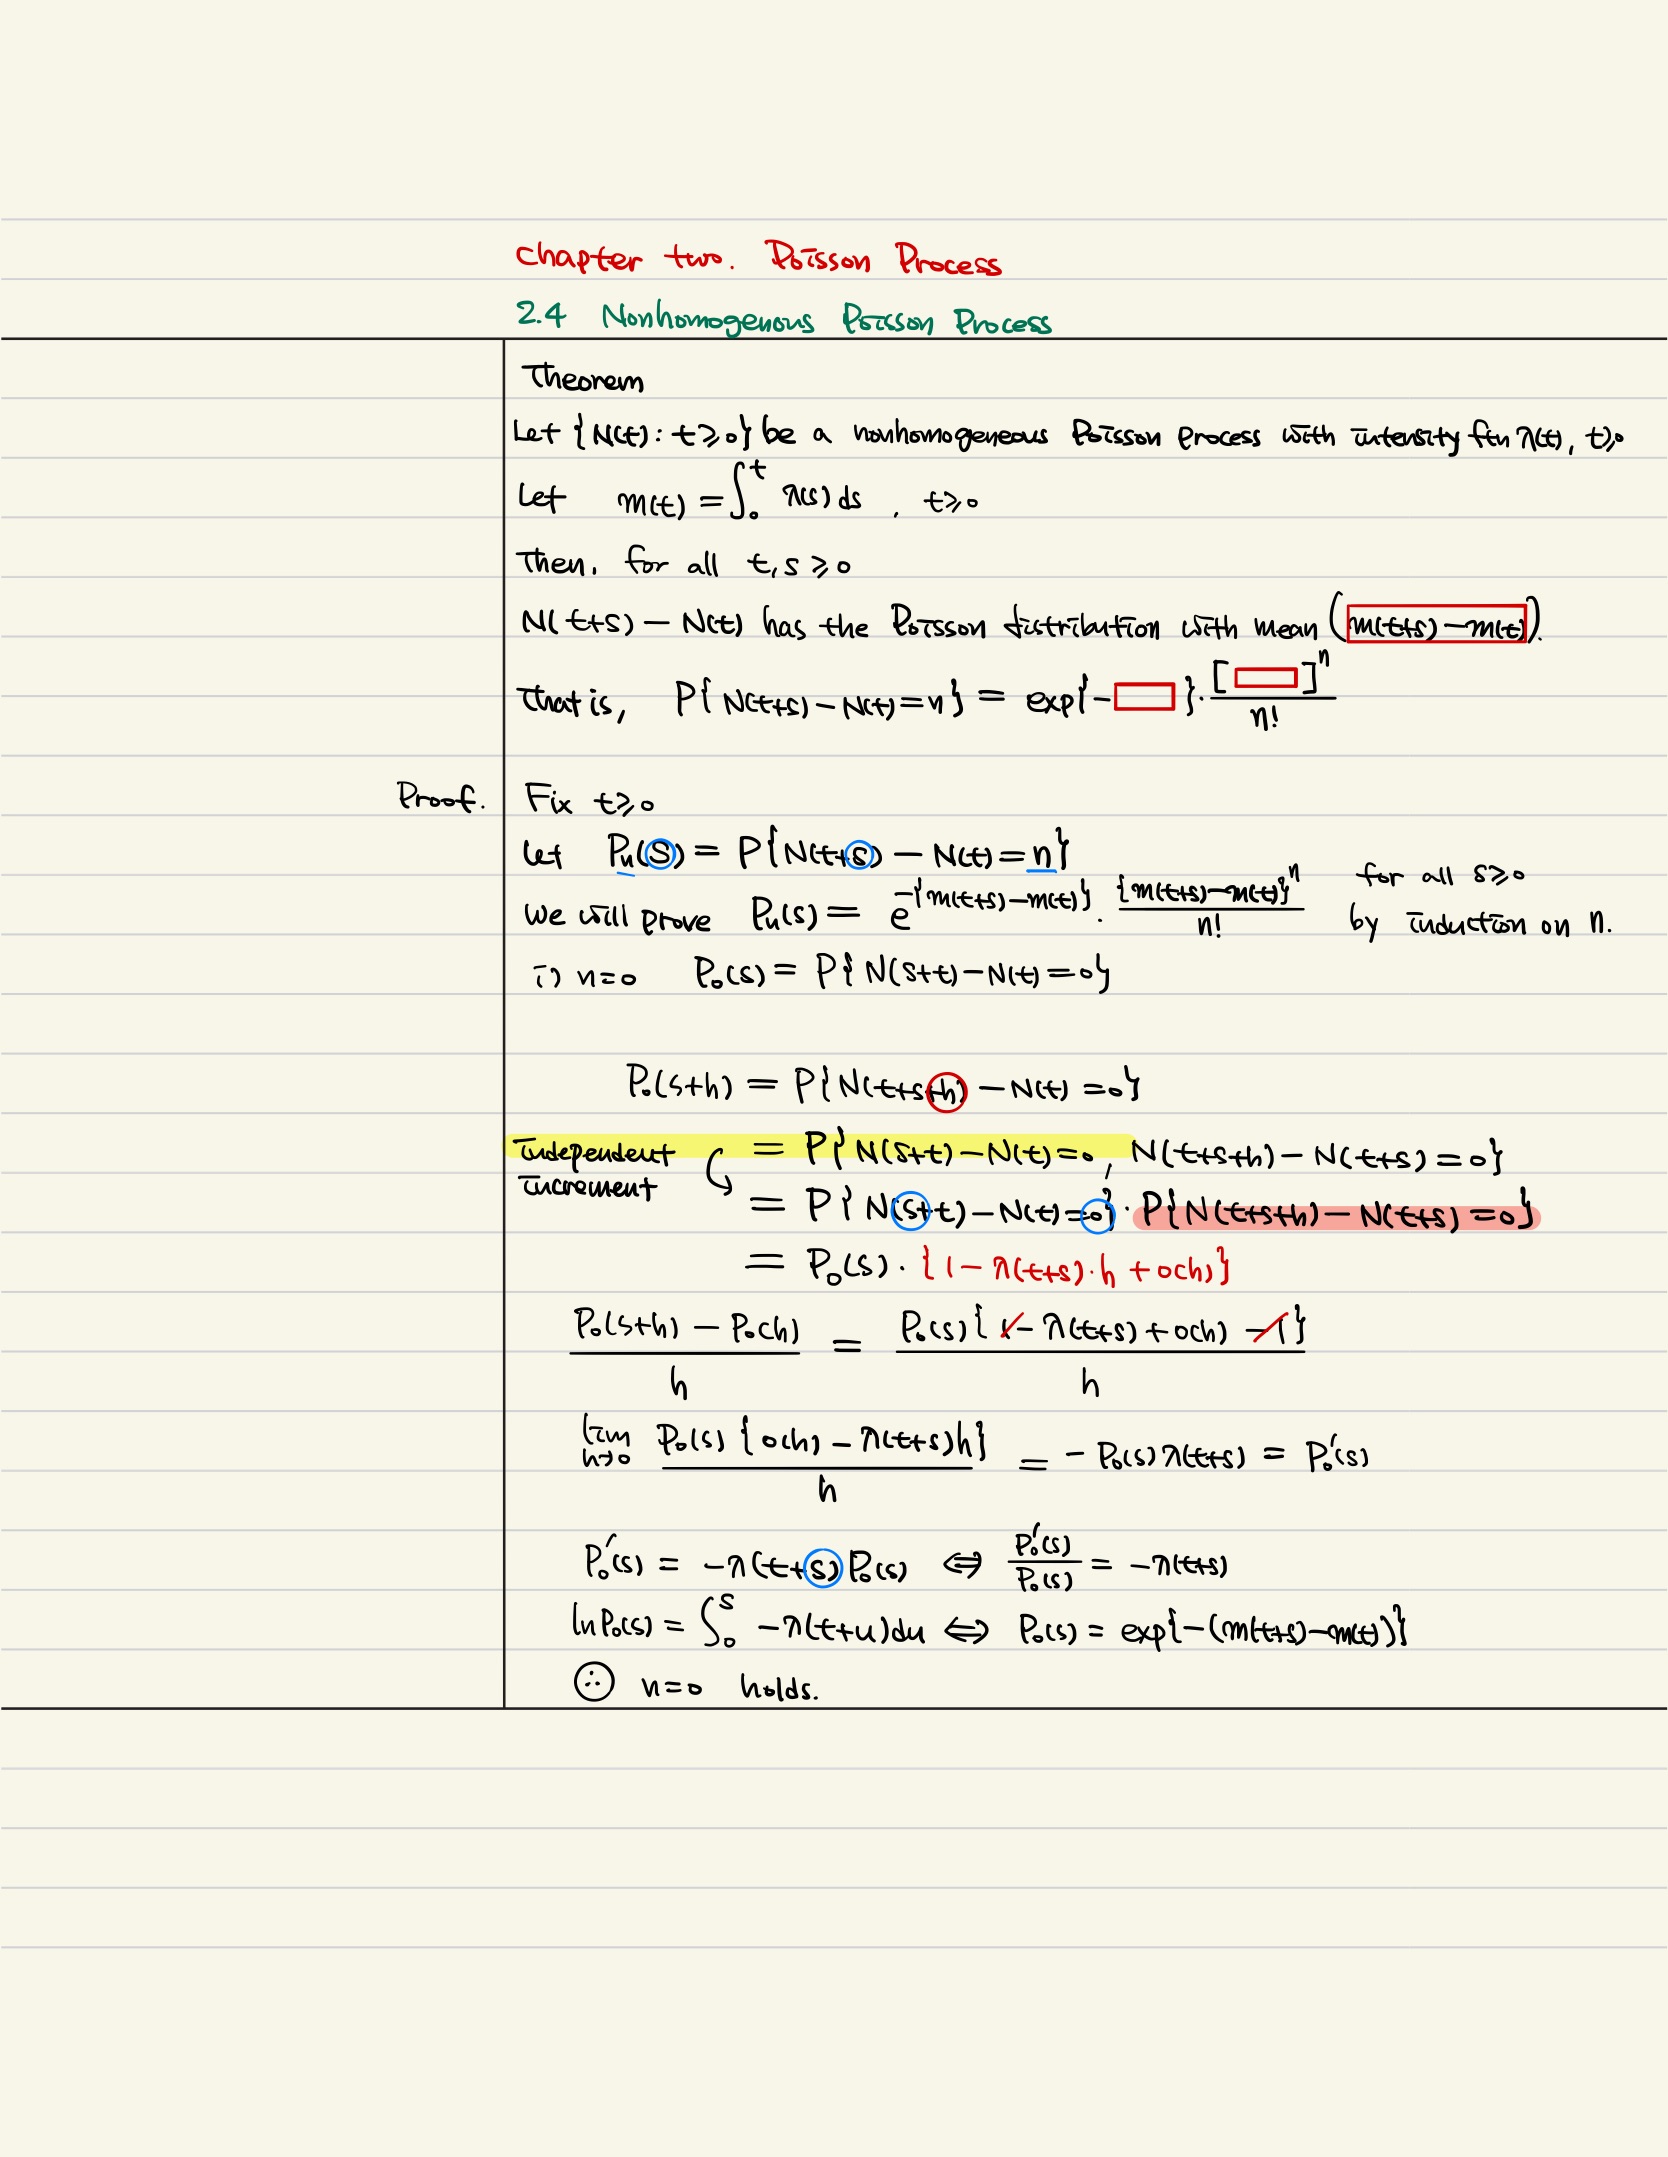 chapter two. Poisson Process
2.4 Nonhomogenous Poisson Process
Theorem
Let {N(t) : t≥0} be a nonhomogeneous Poisson process with intensity ftn λ(t), t≥0
Let m(t) = ∫₀ᵗ λ(s) ds , t≥0
Then, for all t, s ≥ 0
N(t+s) − N(t) has the Poisson distribution with mean (m(t+s) − m(t)).
That is, P{N(t+s) − N(t) = n} = exp{−□}·[□]ⁿ/n!
Proof. Fix t≥0
Let Pₙ(s) = P{N(t+s) − N(t) = n}
We will prove Pₙ(s) = e^{−{m(t+s)−m(t)}} · {m(t+s)−m(t)}ⁿ/n! for all s≥0 by induction on n.
i) n=0 P₀(s) = P{N(s+t) − N(t) = 0}
P₀(s+h) = P{N(t+s+h) − N(t) = 0}
independent increment = P{N(s+t) − N(t) = 0, N(t+s+h) − N(t+s) = 0}
= P{N(s+t) − N(t) = 0} · P{N(t+s+h) − N(t+s) = 0}
= P₀(s) · {1 − λ(t+s)·h + o(h)}
(P₀(s+h) − P₀(h))/h = P₀(s){1 − λ(t+s) + o(h) − 1}/h
lim h→0 P₀(s){o(h) − λ(t+s)h}/h = −P₀(s)λ(t+s) = P₀′(s)
P₀′(s) = −λ(t+s)P₀(s) ⇔ P₀′(s)/P₀(s) = −λ(t+s)
ln P₀(s) = ∫₀ˢ −λ(t+u)du ⇔ P₀(s) = exp{−(m(t+s)−m(t))}
∴ n=0 holds.